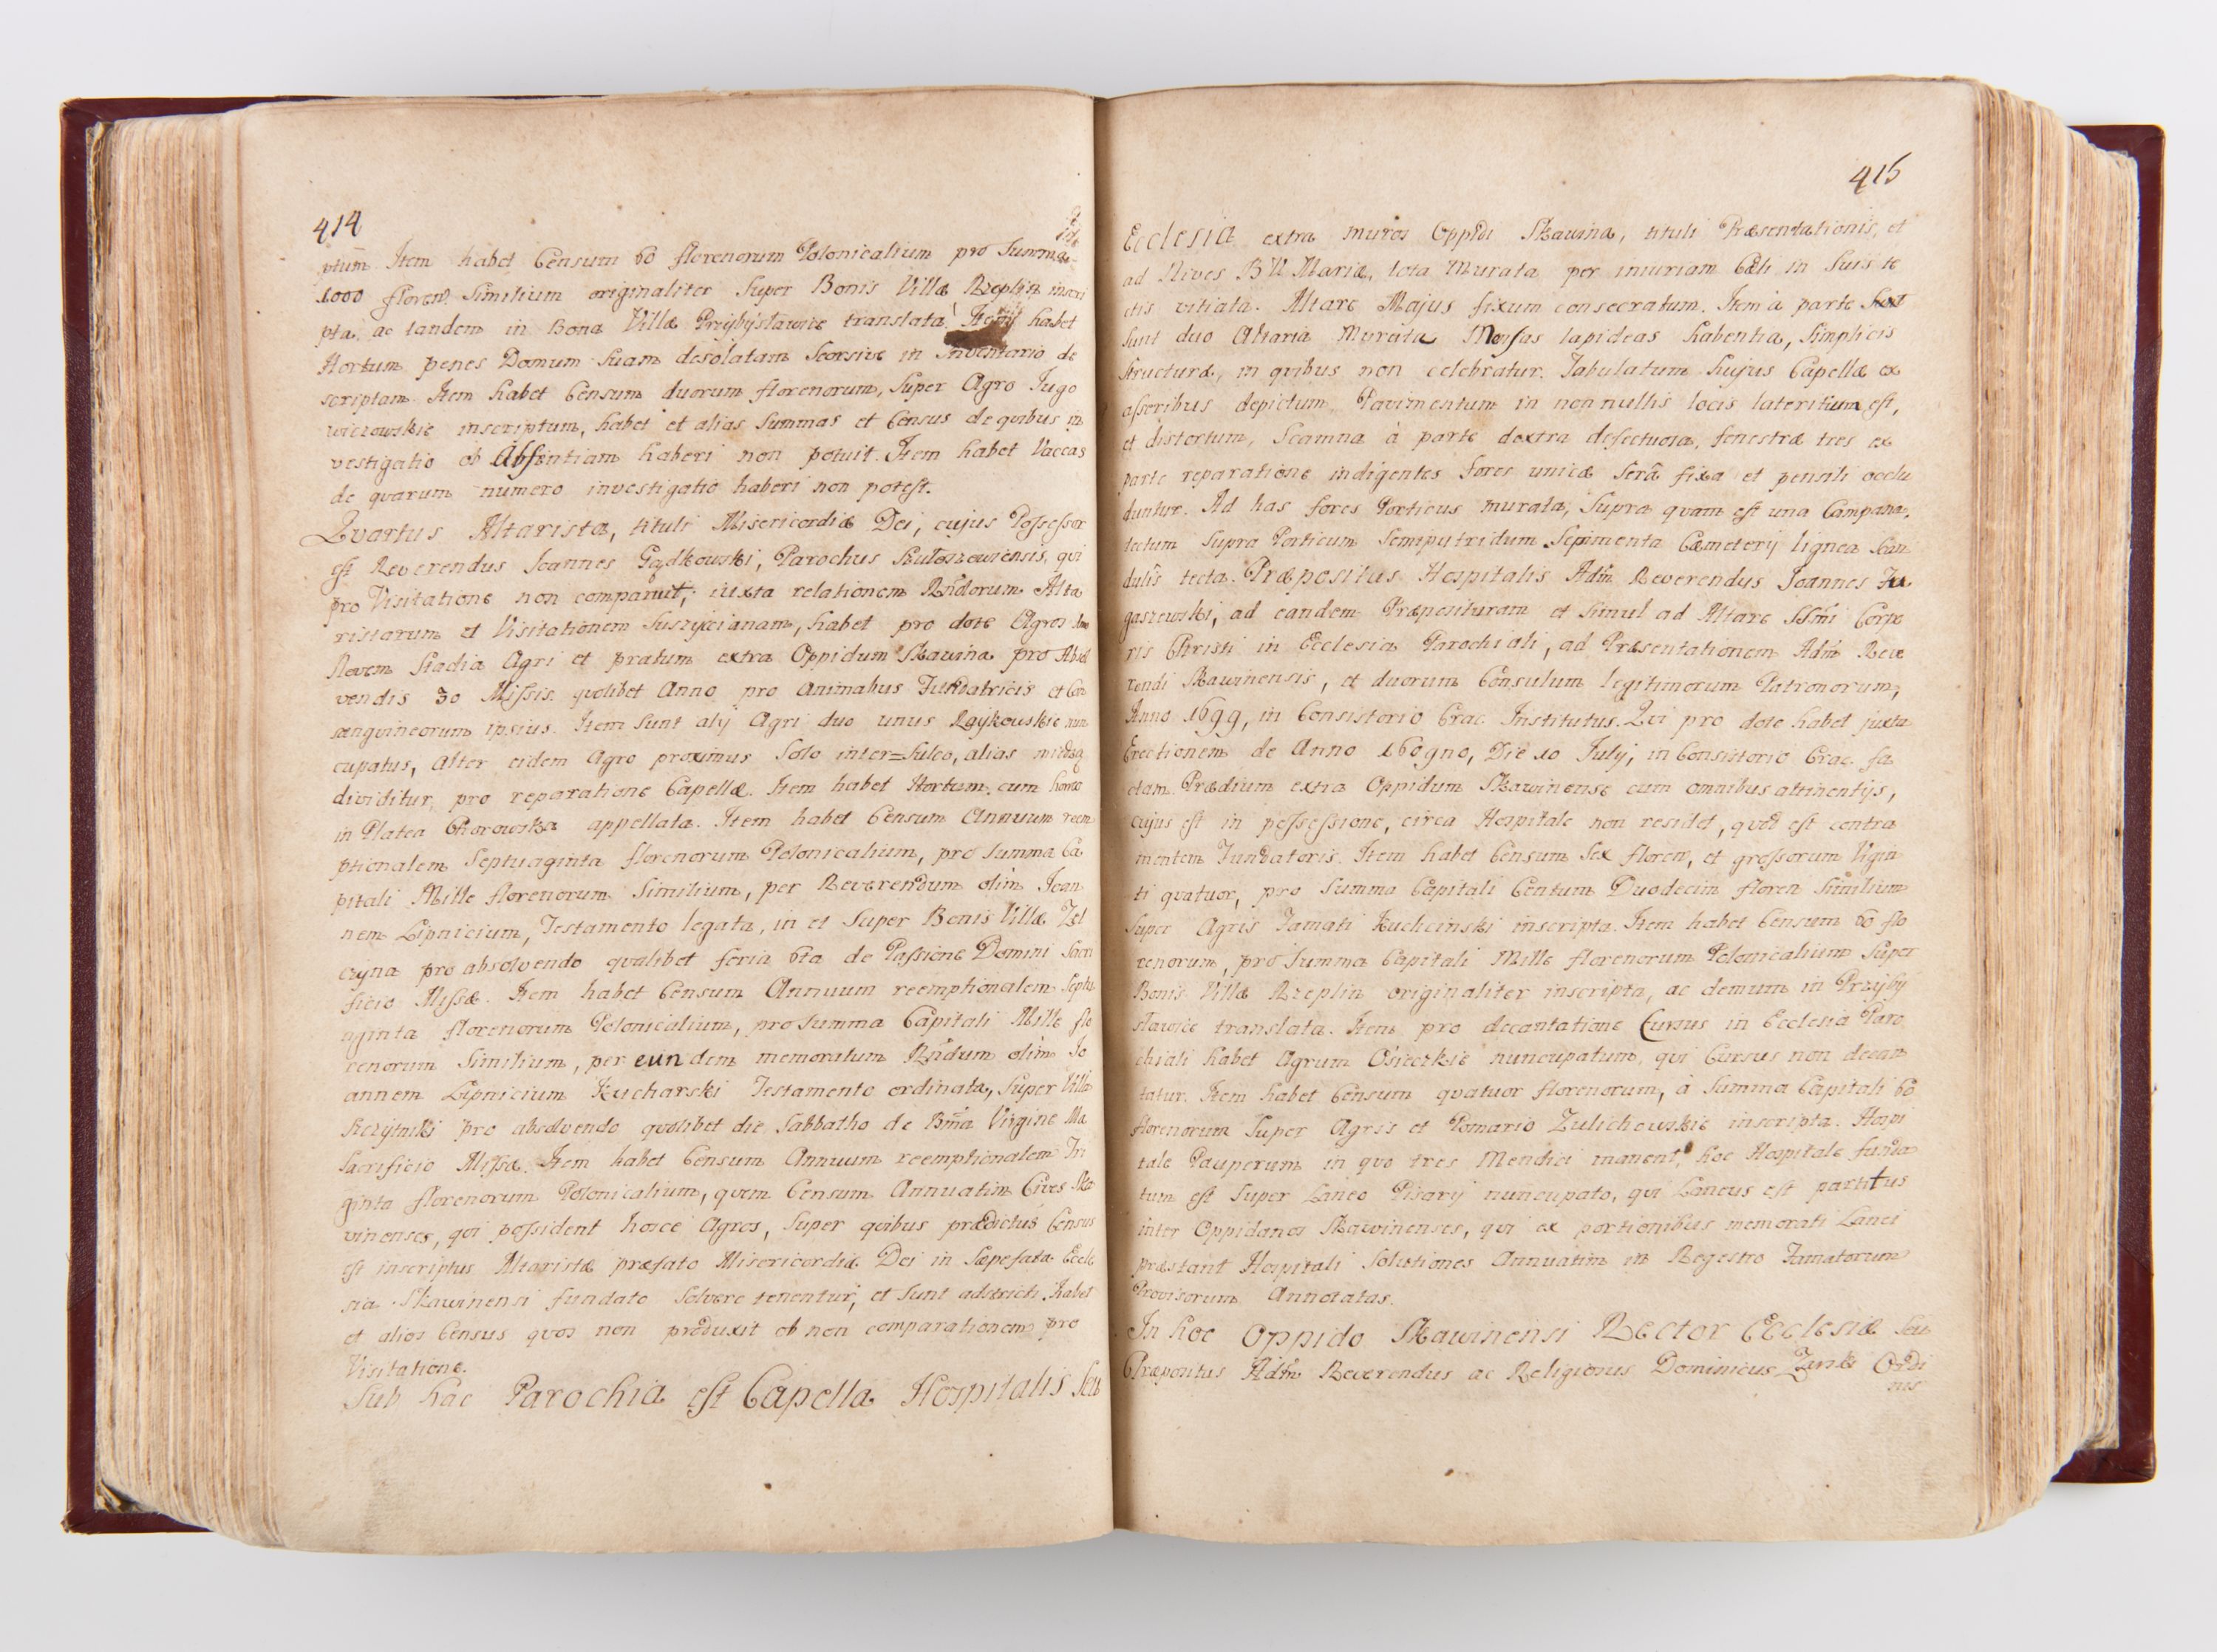 414
ptum. Item habet Censum 60 florenorum Polonicalium pro Summa
1000 floren. Similium originaliter Super Bonis Villæ Rzeplin inscri
pta, ac tandem in Bona Villæ Przybysławice translata. Item habet
Hortum penes Domum Suam desolatam Seorsive in Inventario de
scriptam. Item habet Censum duorum florenorum, Super Agro Jugo
wiczowskie inscriptum, habet et alias Summas et Census de quibus in
vestigatio ob Absentiam haberi non potuit. Item habet Vaccas
de quarum numero investigatio haberi non potest.
Quartus Altarista, tituli Misericordiæ Dei, cujus Possessor
est Reverendus Joannes Gądkowski, Parochus, qui
pro Visitatione non comparuit, iuxta relationem Rndorum Alta
ristarum et Visitationem Suszycianam, habet pro dote Agros
Novem Stadia Agri et pratum extra Oppidum Skawina pro Absol
vendis 30 Missis quolibet Anno pro Animabus Fundatricis et Con
sangvineorum ipsius. Item Sunt alij Agri duo unus Rajkowskie nun
cupatus, Alter eidem Agro proximus Solo inter=Sulco, alias miedzą
dividitur, pro reparatione Capellæ. Item habet Hortum cum horreo
in Platea Chorowska appellata. Item habet Censum Annuum reem
ptionalem Septuaginta florenorum Polonicalium, pro Summa Ca
pitali Mille florenorum Similium, per Reverendum olim Joan
nem Lipnicium, Testamento legata, in et Super Bonis Villæ Zel
czyna pro absolvendo qualibet feria 6ta de Passione Domini Sacri
ficio Missæ. Item habet Censum Annuum reemptionalem Septu
aginta florenorum Polonicalium, pro Summa Capitali Mille flo
renorum Similium, per eundem memoratum Rndum olim Jo
annem Lipnicium Kucharski Testamento ordinata, Super Villa
Szczytniki pro absolvendo quolibet die Sabbatho de Bma Virgine Ma
Sacrificio Missæ. Item habet Censum Annuum reemptionalem Tri
ginta florenorum Polonicalium, quem Censum Annuatim Cives Ska
vinenses, qui possident hosce Agros, Super quibus prædictus Census
est inscriptus Altaristæ præfato Misericordiæ Dei in Sæpefata Eccle
sia Skawinensi fundato Solvere tenentur, et Sunt adstricti. Habet
et alios Census quos non produxit ob non comparationem pro
Visitatione.
Sub hac Parochia est Capella Hospitalis Seu
415
Ecclesia extra muros Oppidi Skawina, tituli Præsentationis, et
ad Nives B V Mariæ, tota Murata per iniuriam Cæli in Suis te
ctis vitiata. Altare Majus fixum consecratum. Item à parte
Sunt duo Altaria Murata Mensas lapideas habentia, Simplicis
Structuræ, in quibus non celebratur. Tabulatum hujus Capellæ ex
asseribus depictum. Pavimentum in non nullis locis lateritium est,
et distortum, Scamna à parte dextra defectuosa, fenestræ tres ex
parte reparatione indigentes fores unicæ Serâ fixa et pensili occlu
duntur. Ad has fores Porticus murata, Supra quam est una Campana,
tectum Supra Porticum Semiputridum Sepimenta Cæmeterij lignea Scan
dulis tecta. Præpositus Hospitalis Adm Reverendus Joannes Ju
gaszewski, ad eandem Præposituram et Simul ad Altare SSmi Corpo
ris Christi in Ecclesia Parochiali, ad Præsentationem Adm Reve
rendi Skawinensis, et duorum Consulum legitimorum Patronorum,
Anno 1699, in Consistorio Crac. Institutus. Qui pro dote habet juxta
Erectionem de Anno 160gno, Die 10 July, in Consistorio Crac. fa
ctam. Prædium extra Oppidum Skawinense cum omnibus attinentijs,
cujus est in possessione, circa Hospitale non residet, quod est contra
mentem Fundatoris. Item habet Censum Sex floren, et grossorum Vigin
ti quatuor, pro Summa Capitali Centum Duodecim floren Similium
Super Agris Famati Kuchcinski inscripta. Item habet Censum 60 flo
renorum, pro Summa Capitali Mille florenorum Polonicalium Super
Bonis Villæ Rzeplin originaliter inscripta, ac demum in Przyby
sławice translata. Item pro decantatione Cursus in Ecclesia Paro
chiali habet Agrum Osieczkie nuncupatum, qui Cursus non decan
tatur. Item habet Censum quatuor florenorum, à Summa Capitali 60
florenorum Super Agris et Pomario Zulichowskie inscripta. Hospi
tale Pauperum in quo tres Mendici manent, hoc Hospitale funda
tum est Super Laneo Pisarij nuncupato, qui Laneus est partitus
inter Oppidanos Skawinenses, qui ex portionibus memorati Lanei
præstant Hospitali Solutiones Annuatim in Regestro Famatorum
Provisorum Annotatas.
In hoc Oppido Skawinensi Rector Ecclesiæ Seu
Præpositus Adm Reverendus ac Religiosus Dominicus Ordi
nis